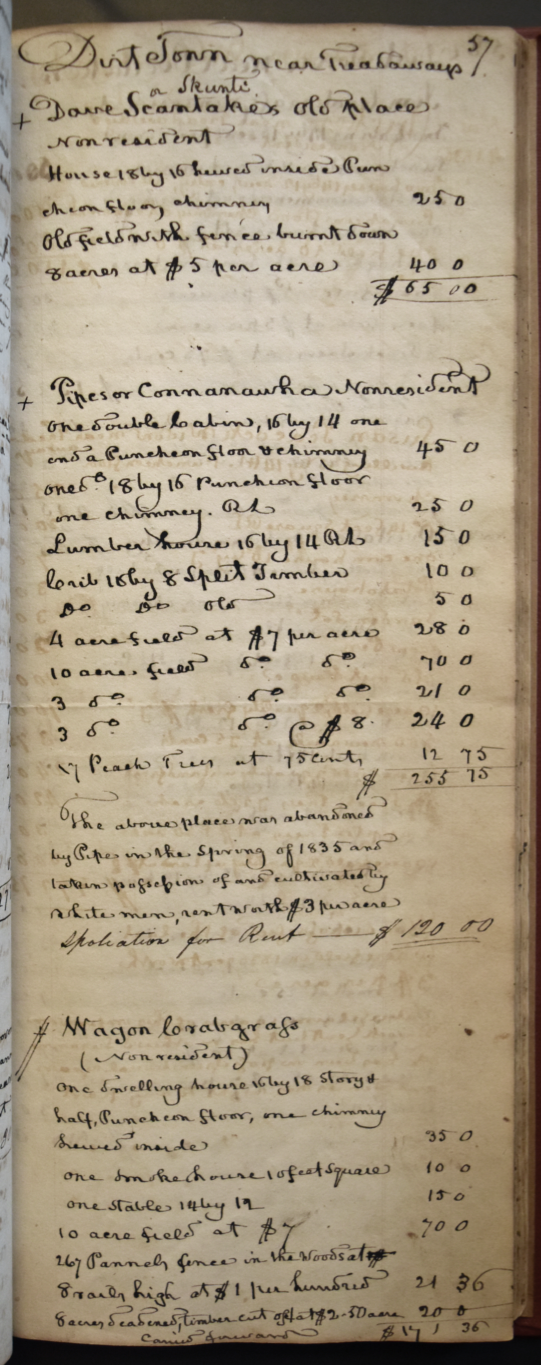 57
Dirt Town near Treadaways
or Skunti
+ Dave Scantakes old place
Nonresident
House 18 by 16 hewed inside Pun
cheon floor, chimney 25 0
Old field with fence burnt down
8 acres at $5 per acre 40 0
$65 00
+ Pipes or Connanawha Nonresident
One double Cabin, 16 by 14 one
end a Puncheon floor & chimney 45 0
one do 18 by 16 Puncheon floor
one chimney. RL 25 0
Lumber house 16 by 14 RL 15 0
Crib 16 by 8 Split Timber 10 0
Do Do old 5 0
4 acre field at $7 per acre 28 0
10 acre field do do 70 0
3 do do do 21 0
3 do do @ $8 24 0
17 Peach Trees at 75 cents 12 75
$ 255 75
The above place was abandoned
by Pipe in the Spring of 1835 and
taken possession of and cultivated by
white men, rent worth $3 per acre
Spoliation for Rent — $120 00
Wagon Crabgrass
(Nonresident)
One dwelling house 16 by 18 Story &
half, Puncheon floor, one chimney
hewed inside 35 0
one smoke house 10 feet square 10 0
one stable 14 by 12 15 0
10 acre field at $7 70 0
267 Pannels fence in the woods at
8 rails high at $1 per hundred 21 36
8 acres deadened, timber cut off at $2-50 acre 20 0
Carried forward $171 36